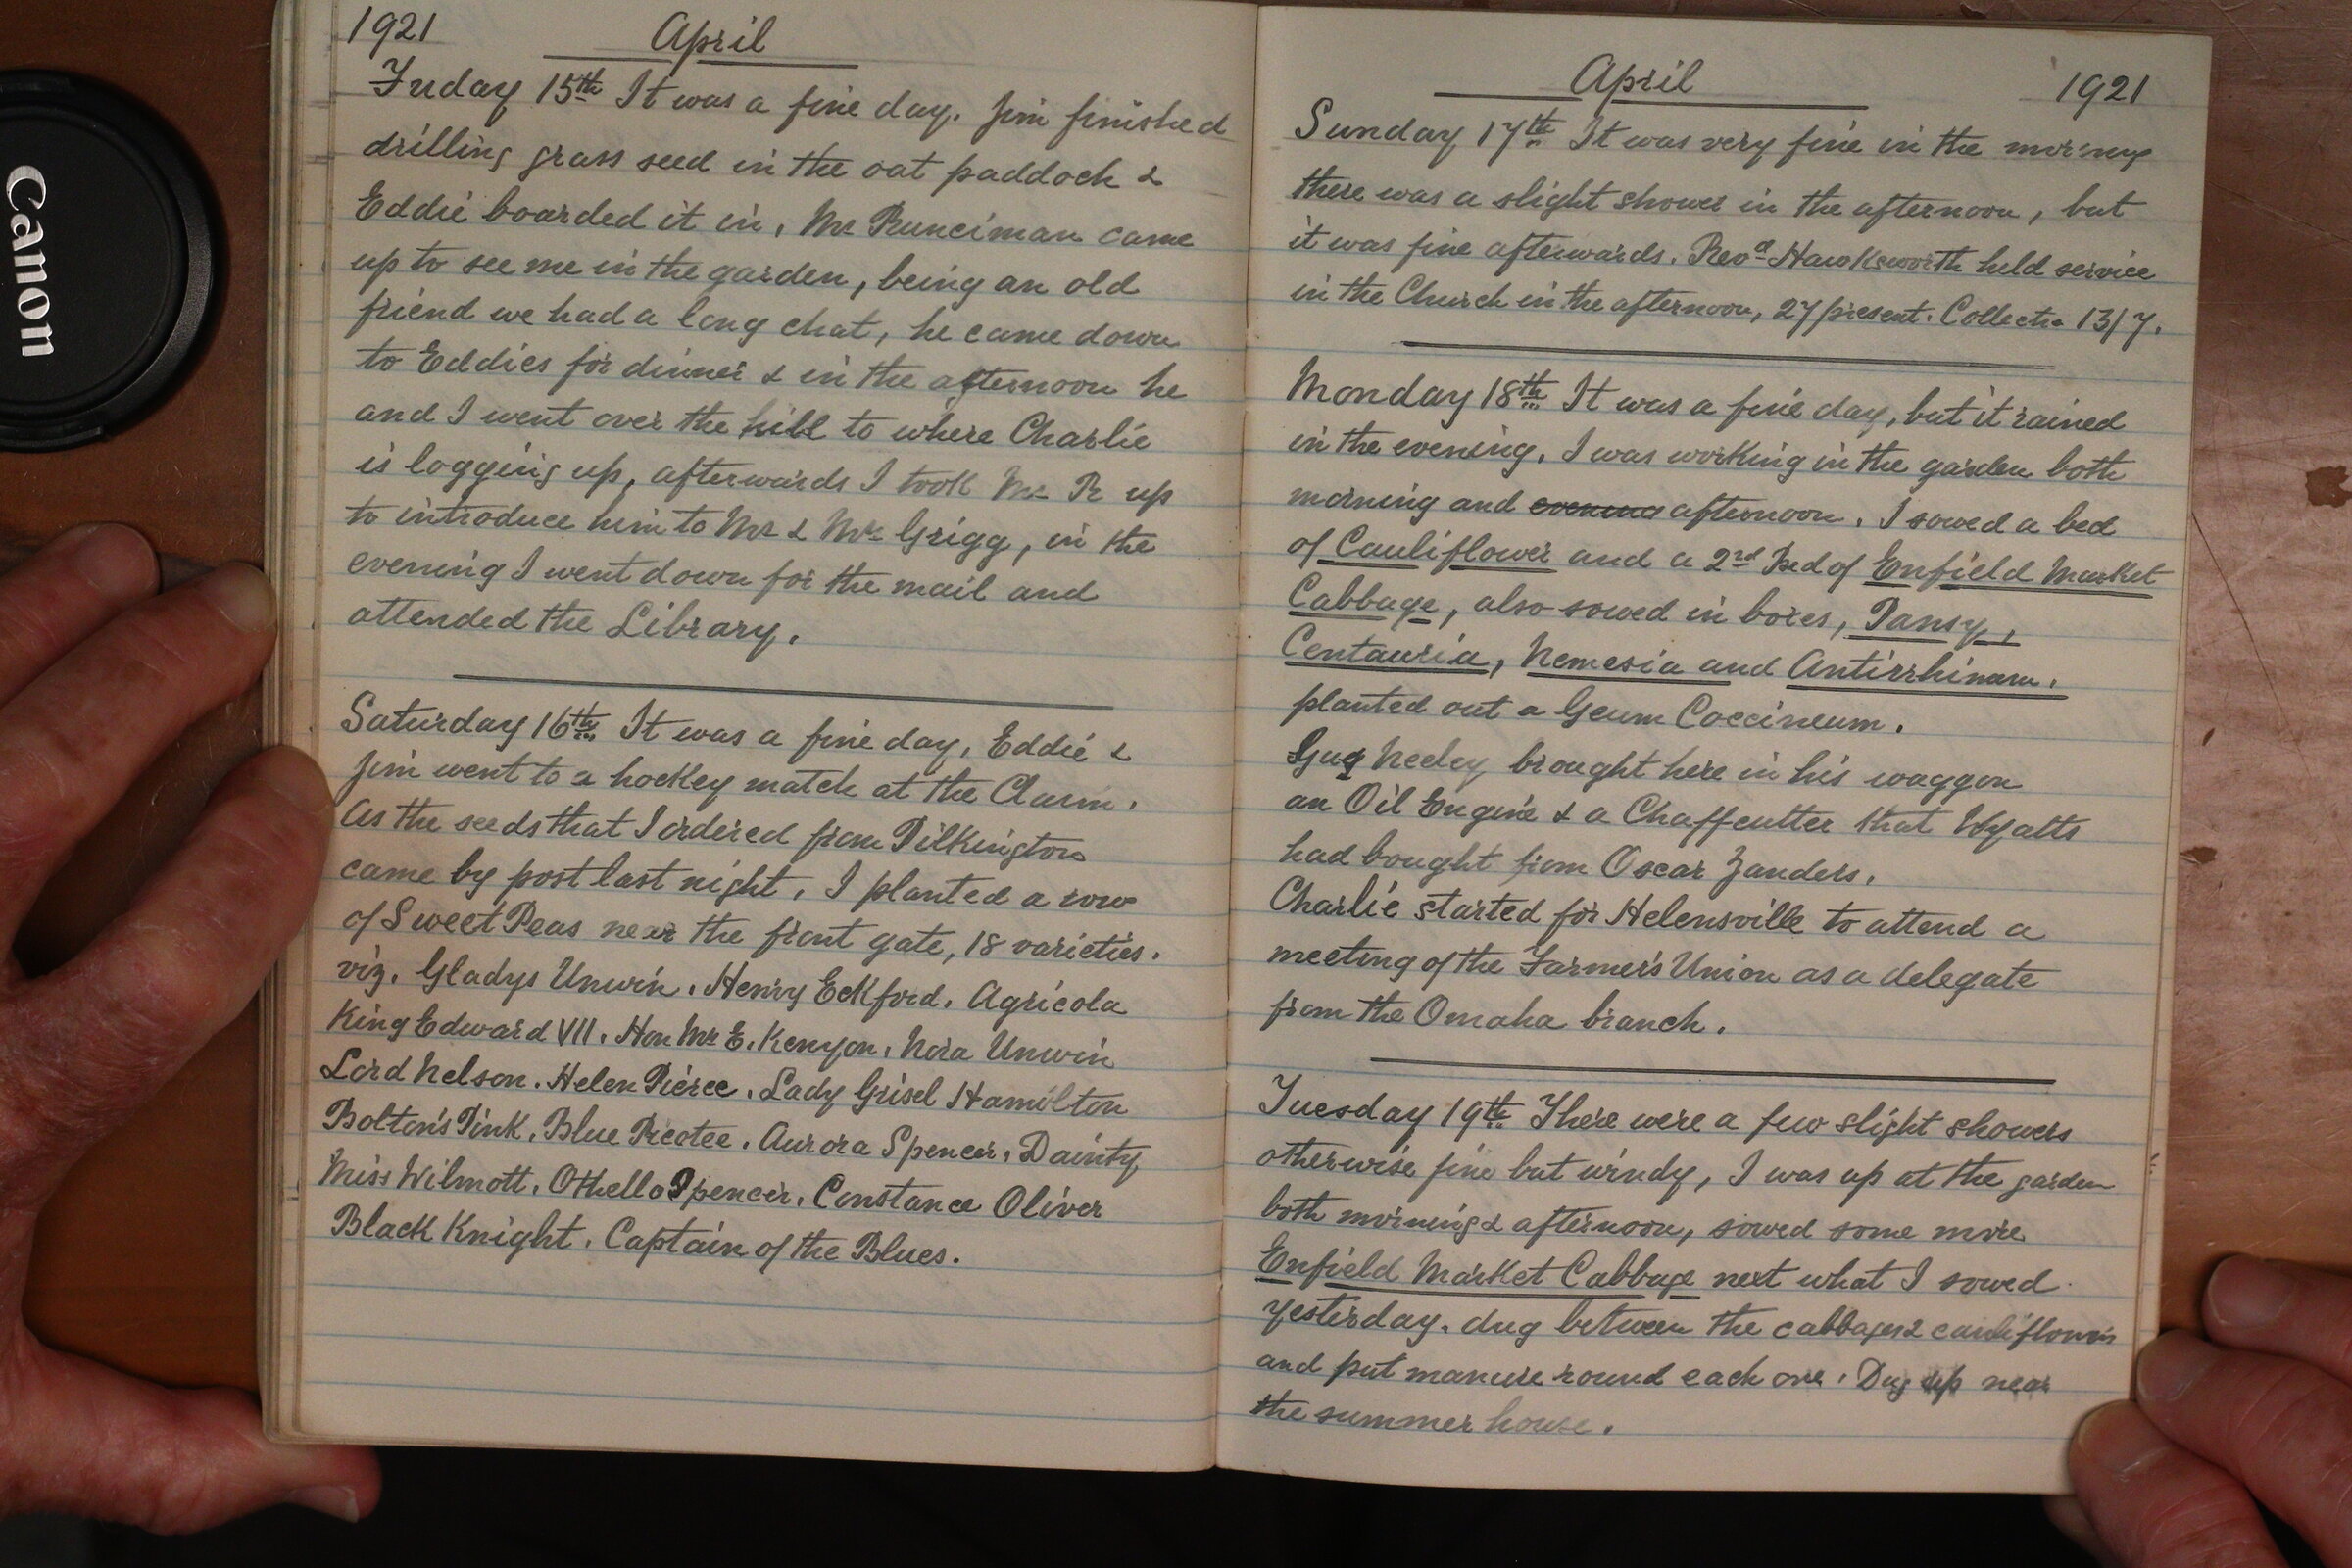 Canon
1921 April
Friday 15th It was a fine day. Jim finished
drilling grass seed in the oat paddock &
Eddie boarded it in, Mr Runciman came
up to see me in the garden, being an old
friend we had a long chat, he came down
to Eddies for dinner & in the afternoon he
and I went over the hill to where Charlie
is logging up, afterwards I took Mr R up
to introduce him to Mr & Mrs Grigg, in the
evening I went down for the mail and
attended the Library.
Saturday 16th It was a fine day, Eddie &
Jim went to a hockey match at the
As the seeds that I ordered from Pilkingtons
came by post last night, I planted a row
of Sweet Peas near the front gate, 18 varieties.
viz. Gladys Unwin. Henry Eckford. Agricola
King Edward VII. Hon Mr E. Kenyon. Nora Unwin
Lord Nelson. Helen Pierce. Lady Grisel Hamilton
Bolton's Pink. Blue Picotee. Aurora Spencer. Dainty
Miss Wilmott. Othello Spencer. Constance Oliver
Black Knight. Captain of the Blues.
April 1921
Sunday 17th It was very fine in the morning
there was a slight shower in the afternoon, but
it was fine afterwards. Revd Hawksworth held service
in the Church in the afternoon, 27 present. Collectn 13/7.
Monday 18th It was a fine day, but it rained
in the evening. I was working in the garden both
morning and evening afternoon. I sowed a bed
of Cauliflower and a 2nd Bed of Enfield Market
Cabbage, also sowed in boxes, Pansy,
Centauria, Nemesia and Antirrhinum.
planted out a Geum Coccineum.
Gus Neeley brought here in his waggon
an Oil Engine & a Chaffcutter that Wyatts
had bought from Oscar Zanders.
Charlie started for Helensville to attend a
meeting of the Farmer's Union as a delegate
from the Omaha branch.
Tuesday 19th There were a few slight showers
otherwise fine but windy, I was up at the garden
both morning & afternoon, sowed some more
Enfield Market Cabbage next what I sowed
yesterday. dug between the cabbages & cauliflowers
and put manure round each one. Dug up near
the summer house.